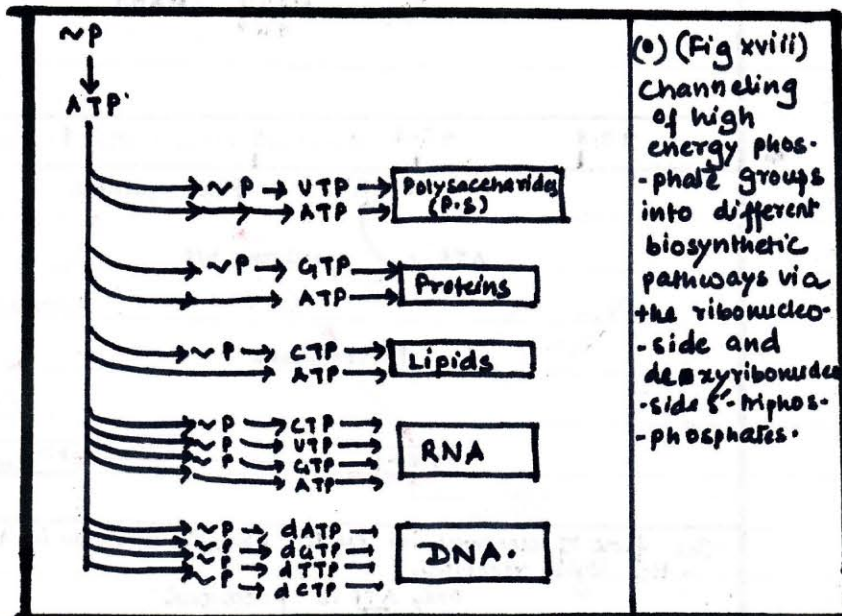 ~P
ATP
~P → UTP → Polysaccharides
(P.S)
→ ATP →
~P → GTP → Proteins
→ ATP →
~P → CTP → Lipids
→ ATP →
~P → CTP →
~P → UTP → RNA
~P → GTP →
ATP →
~P → dATP →
~P → dGTP → DNA.
~P → dTTP →
~P → dCTP →
(o) (Fig xviii)
Channeling
of high
energy phos-
-phate groups
into different
biosynthetic
pathways via
the ribonucleo-
-side and
deoxyribonucleo
-side 5'-triphos-
-phosphates.